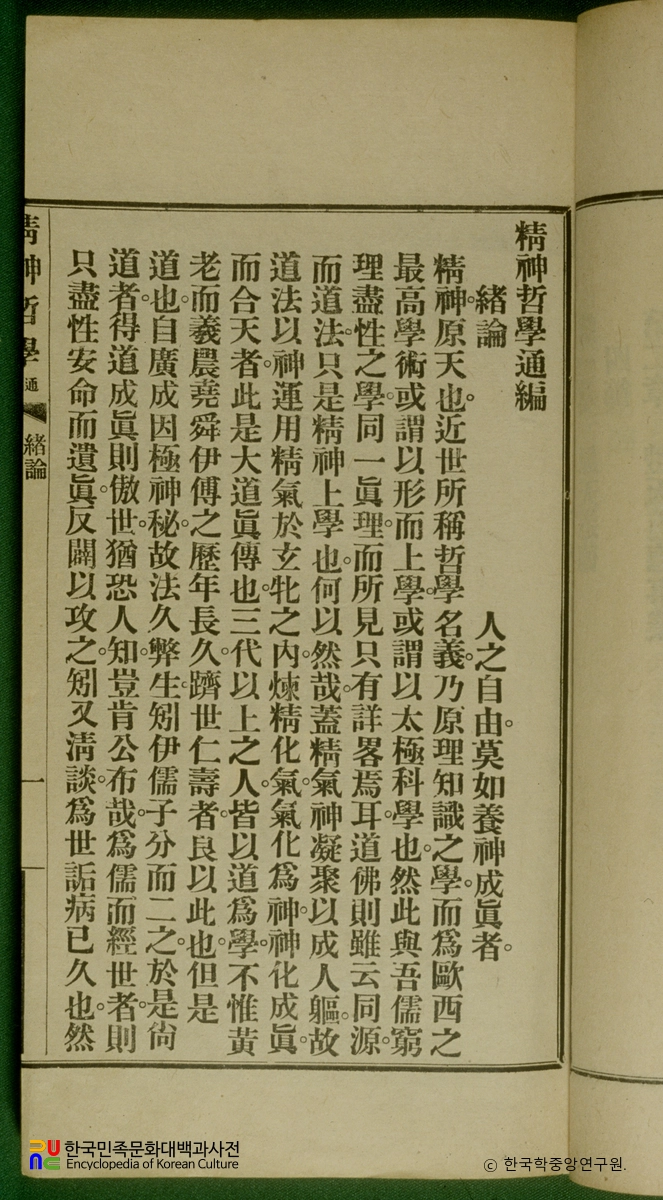 精神哲學通編
緒論
人之自由。莫如養神成眞者。
精神。原天也。近世所稱哲學名義。乃原理知識之學。而爲歐西之
最高學術。或謂以形而上學。或謂以太極科學也。然此與吾儒窮
理盡性之學。同一眞理。而所見只有詳畧焉耳。道佛則雖云同源。
而道法。只是精神上學也。何以然哉。蓋精氣神凝聚以成人軀。故
道法以神運用精氣於玄牝之內。煉精化氣。氣化爲神。神化成眞。
而合天者。此是大道眞傳也。三代以上之人。皆以道爲學。不惟黃
老。而羲農堯舜伊傅之歷年長久。躋世仁壽者。良以此也。但是
道也。自廣成因極神秘。故法久弊生。矧伊儒子分而二之。於是尙
道者。得道成眞則傲世。猶恐人知。豈肯公布哉。爲儒而經世者。則
只盡性安命而遺眞。反闢以攻之。矧又淸談。爲世詬病已久也。然
精神哲學 通
緒論
一
한국민족문화대백과사전
Encyclopedia of Korean Culture
ⓒ 한국학중앙연구원.